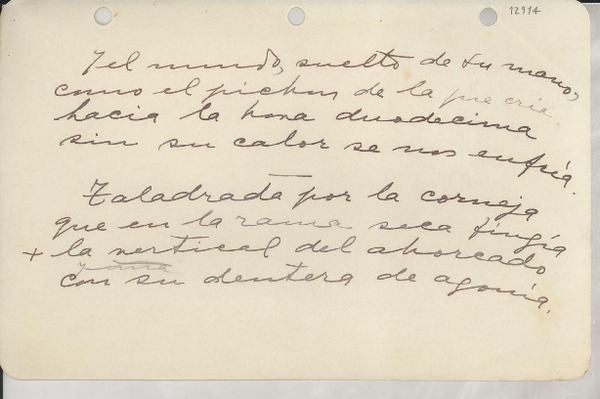 12914
Y el mundo, suelto de tu mano,
como el pichón de la que cría
hacia la hora duodecima
sin su calor se nos enfría.
Taladrada por la corneja
que en la rama seca fingía
+ la vertical del ahorcado
con su dentera de agonía.